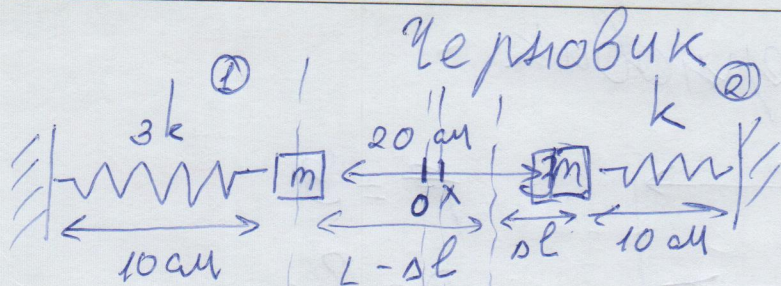 Черновик
① ②
3k 20 см k
m m
0 x
10 см L - Δl Δl 10 см